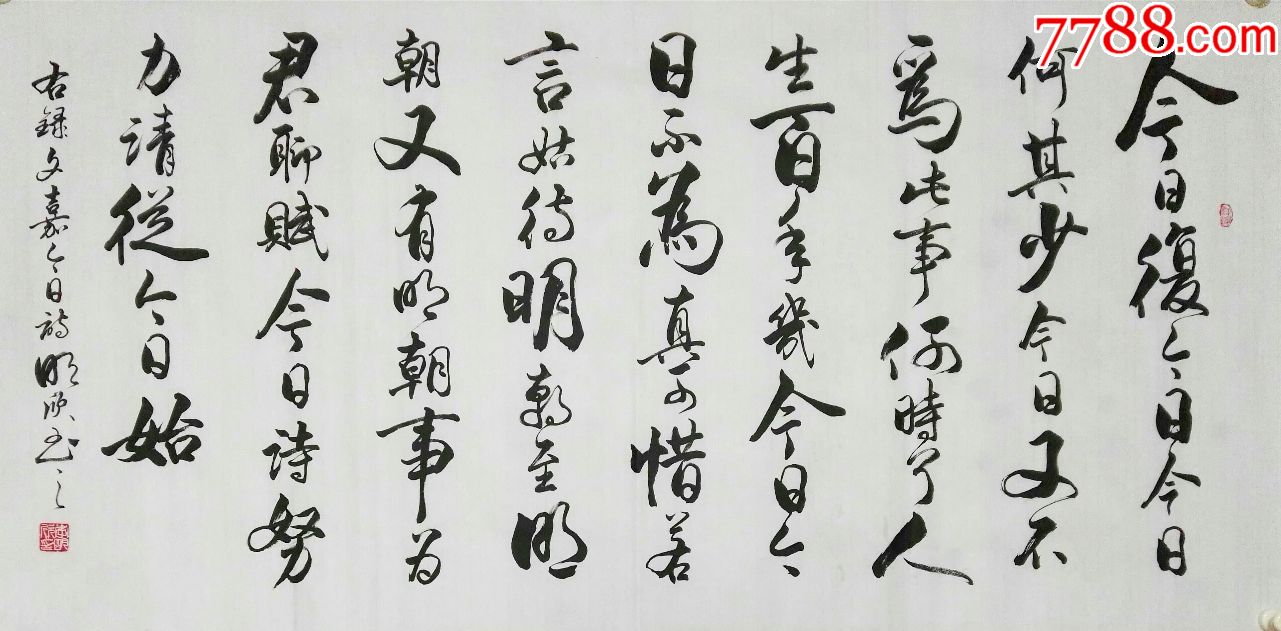 7788.com
今日復今日今日
何其少今日又不
爲此事何時了人
生百年幾今日今
日不為真可惜若
言姑待明朝至明
朝又有明朝事为
君聊賦今日詩努
力請從今日始
右録文嘉今日詩明欣书之